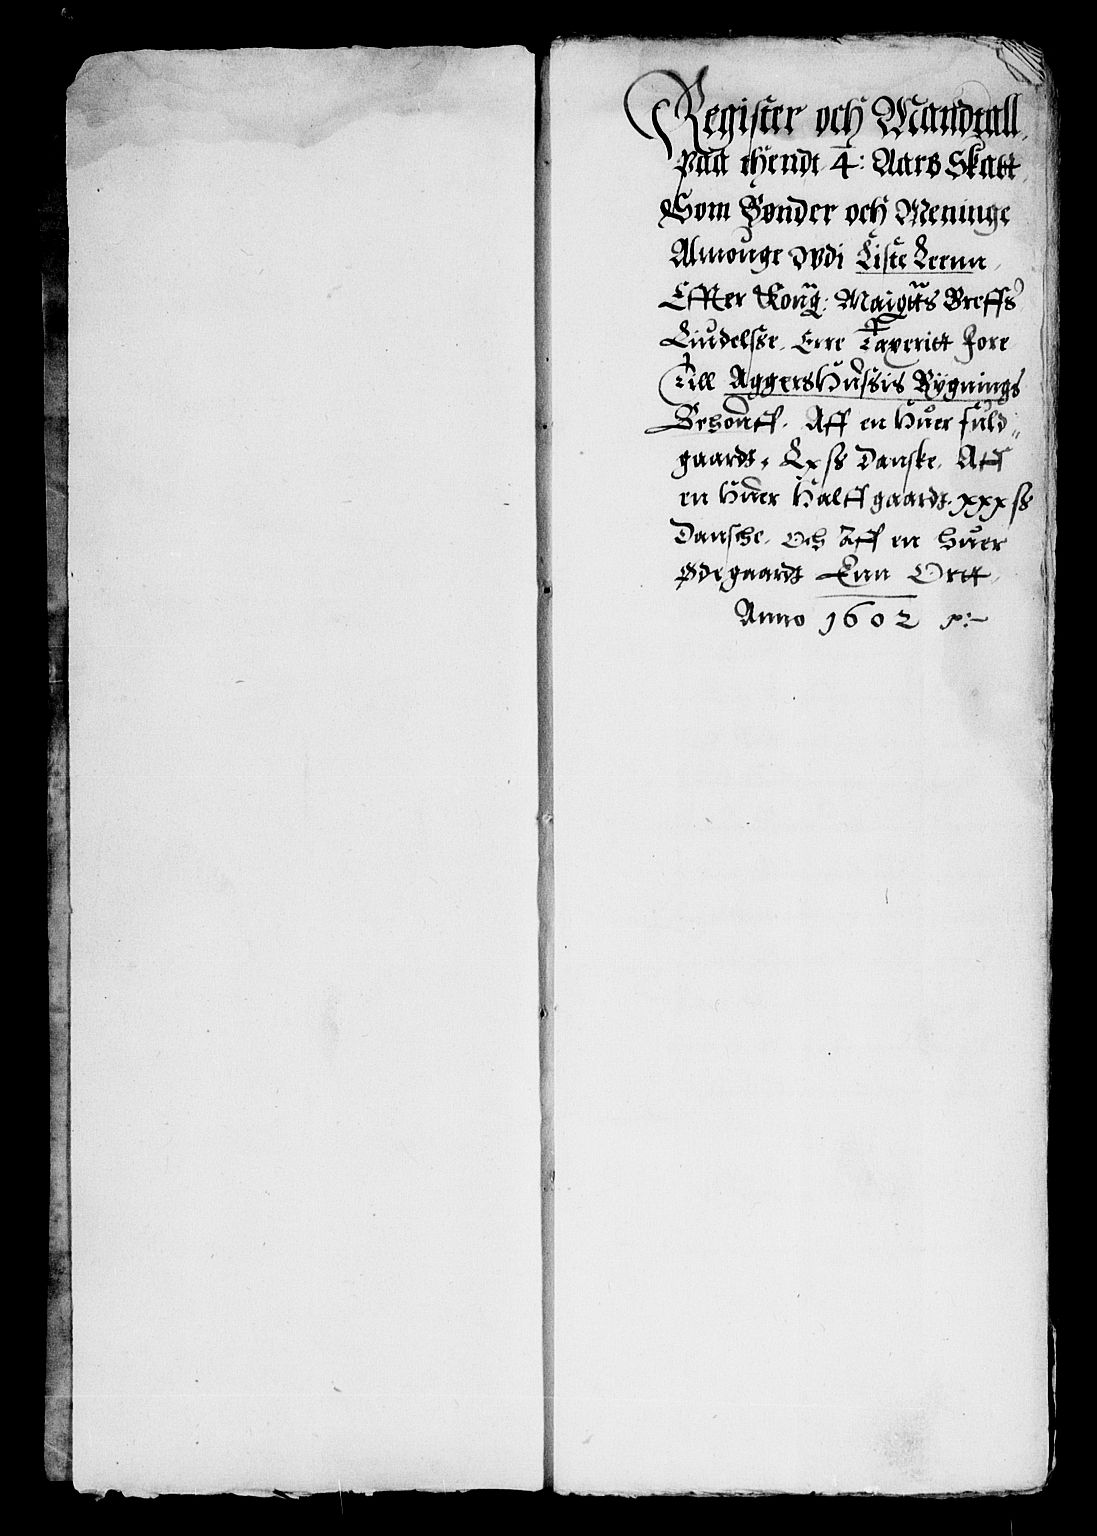 Register och Mandtall
Paa thendt 4: Aars Skatt
Som Bønder och Meninge
Almouge vdi Liste Leenn
Effter Kong: Maigtts Breffs
Liudelsse, Erre Taxeritt fore
Till Aggershussis Bygnings
Behouff. Aff en huer fuld
gaardt, Lx ss Danske, Aff
en huer halff gaardt, xxx ss
Dansche, och Aff en huer
Ødegaardt Enn Ortt
Anno 1602